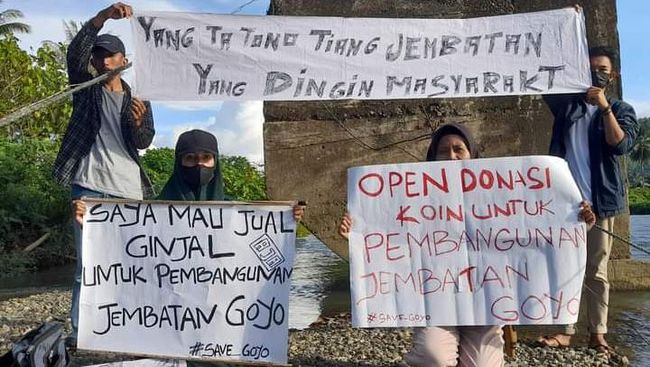 YANG TATONO TIANG JEMBATAN
YANG DINGIN MASYARAKT
SAYA MAU JUAL
GINJAL
UNTUK PEMBANGUNAN
JEMBATAN GOYO
#SAVE_GOJO
OPEN DONASI
KOIN UNTUK
PEMBANGUNAN
JEMBATAN
GOYO
#SAVE_GOYO